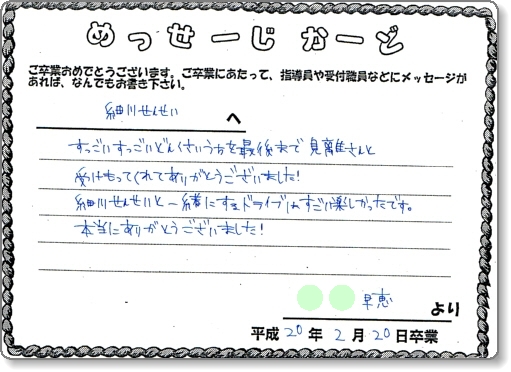 めっせーじ かーど
ご卒業おめでとうございます。ご卒業にあたって、指導員や受付職員などにメッセージが
あれば、なんでもお書き下さい。
細川せんせい へ
すっごいすっごいどんくさいうちを最後まで見離さんと
受けもってくれてありがとうございました!
細川せんせいと一緒にするドライブはすごい楽しかったです。
本当にありがとうございました!
早恵 より
平成 20 年 2 月 20 日卒業